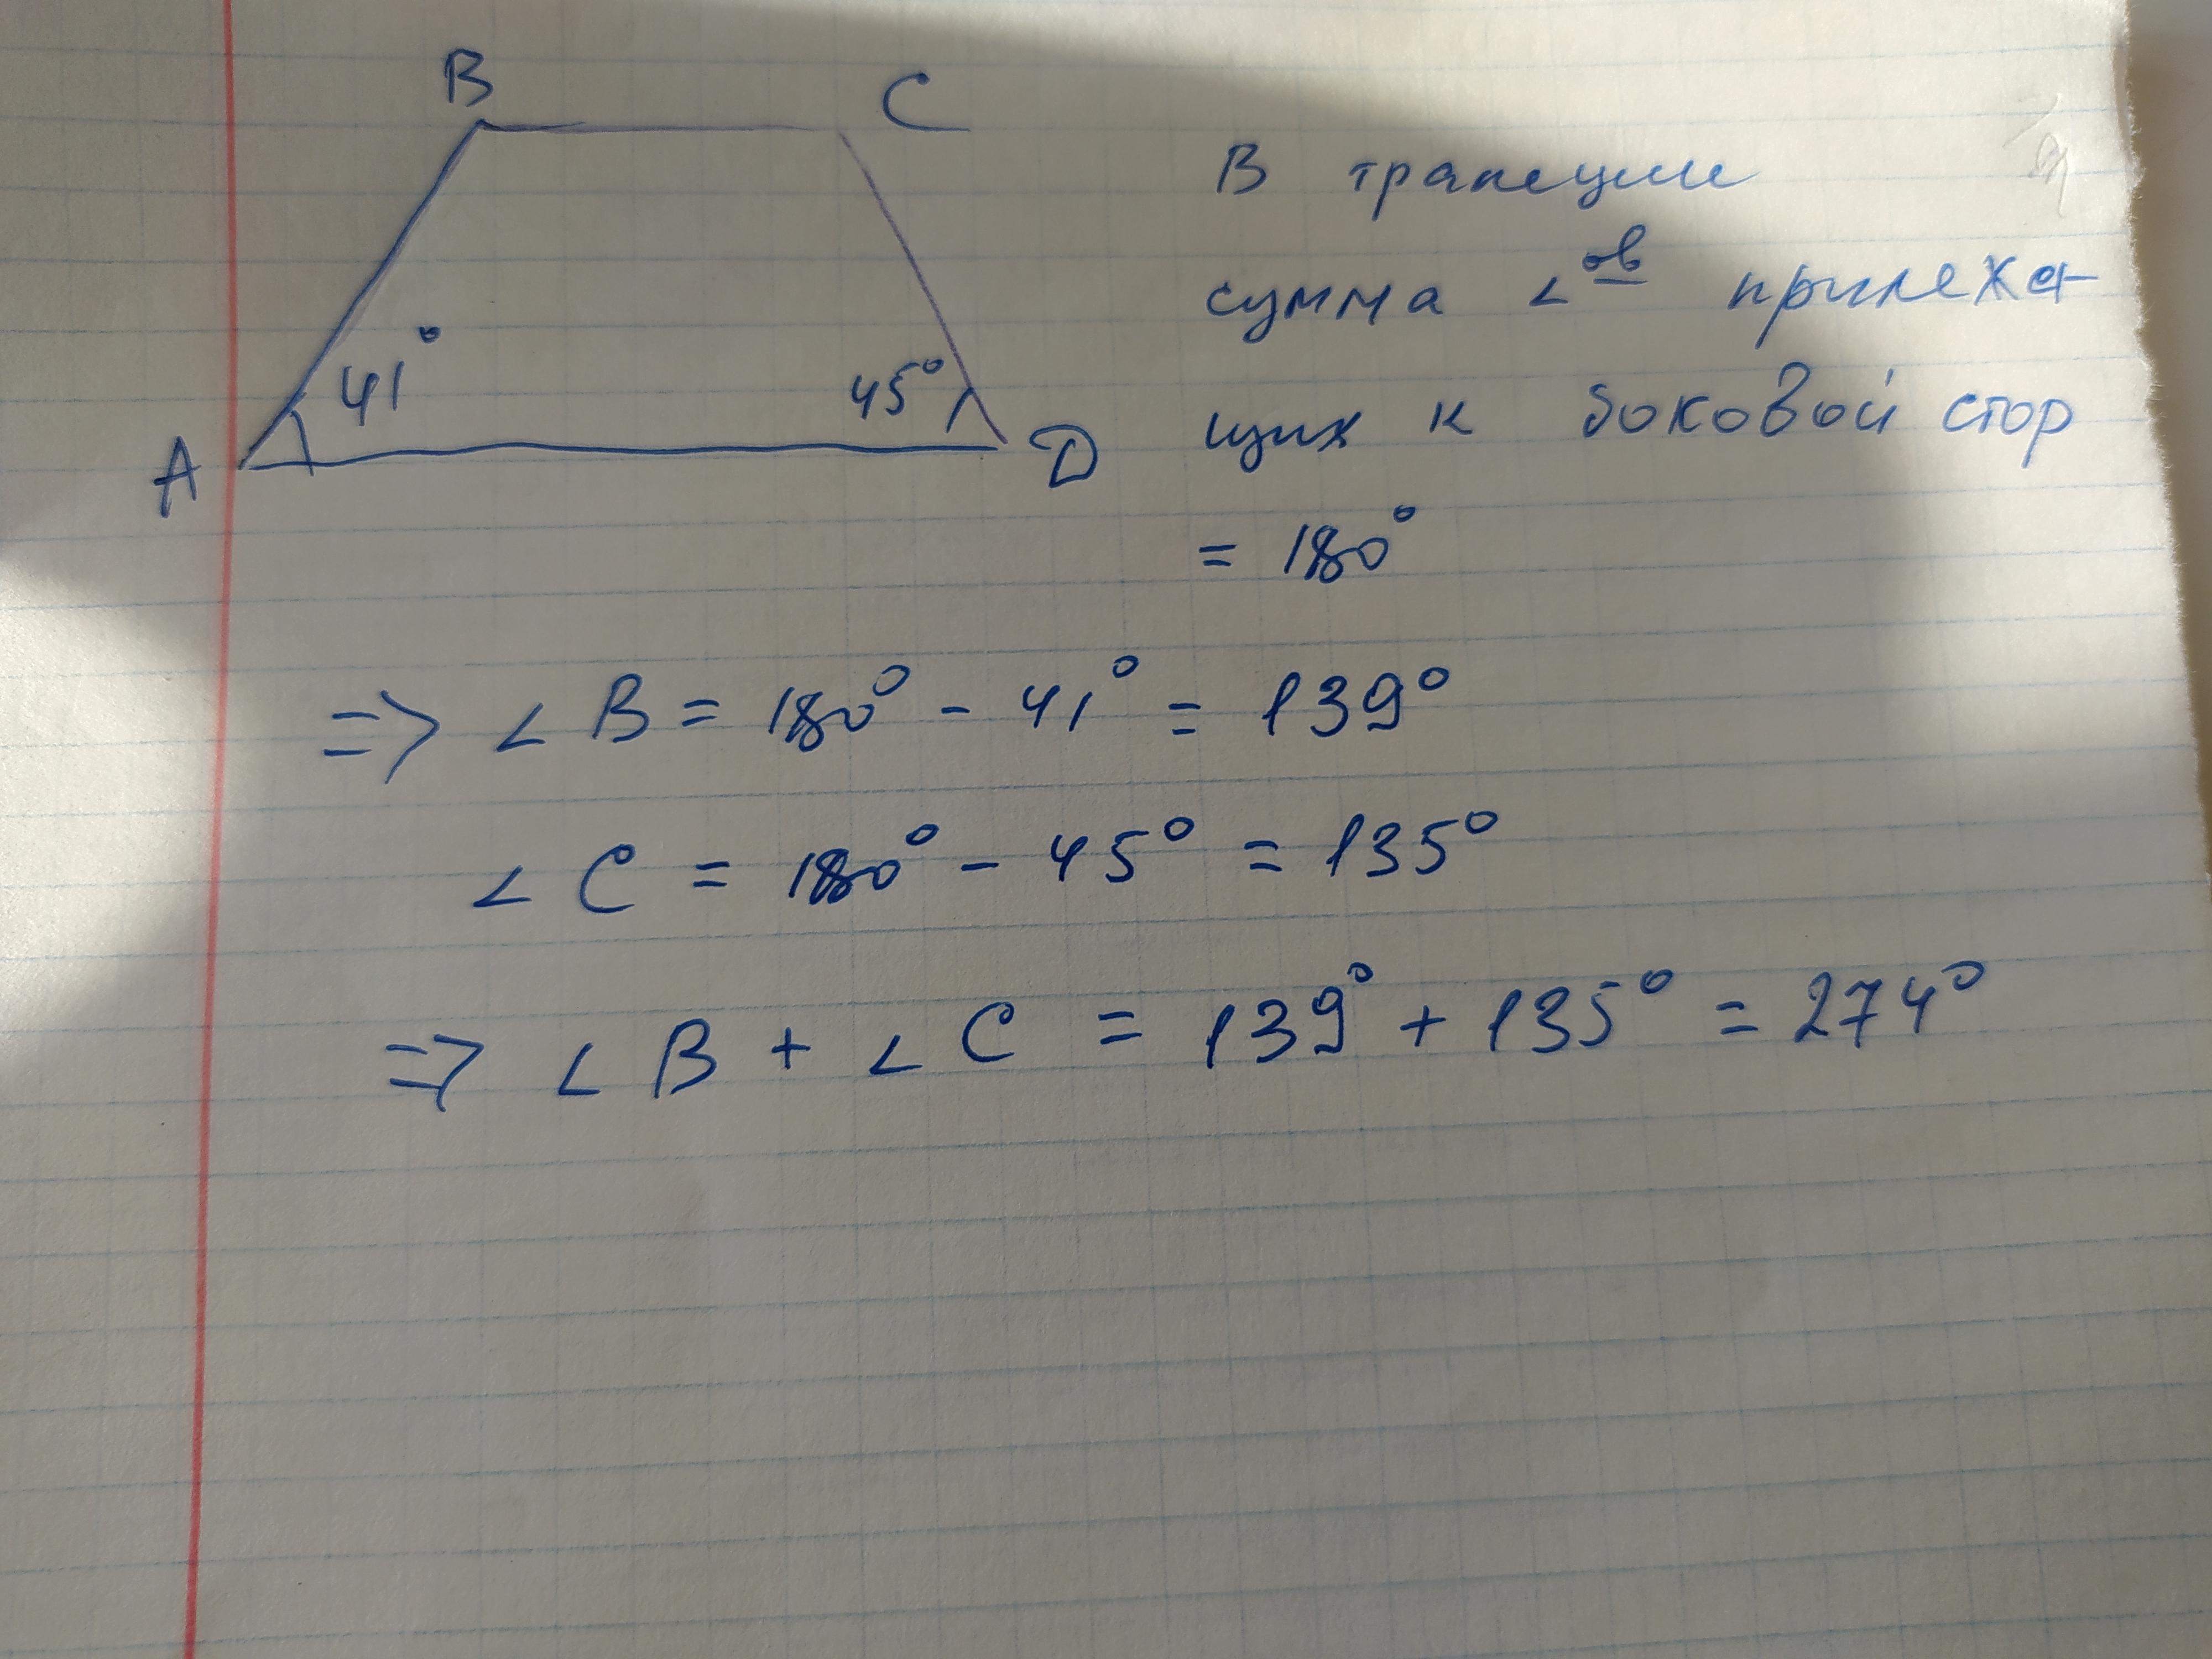 B
C
41°
45°
A
D
В трапеции
сумма ∠ов прилежа-
щих к боковой стор
= 180°
=> ∠ B = 180° - 41° = 139°
∠ C = 180° - 45° = 135°
=> ∠ B + ∠ C = 139° + 135° = 274°